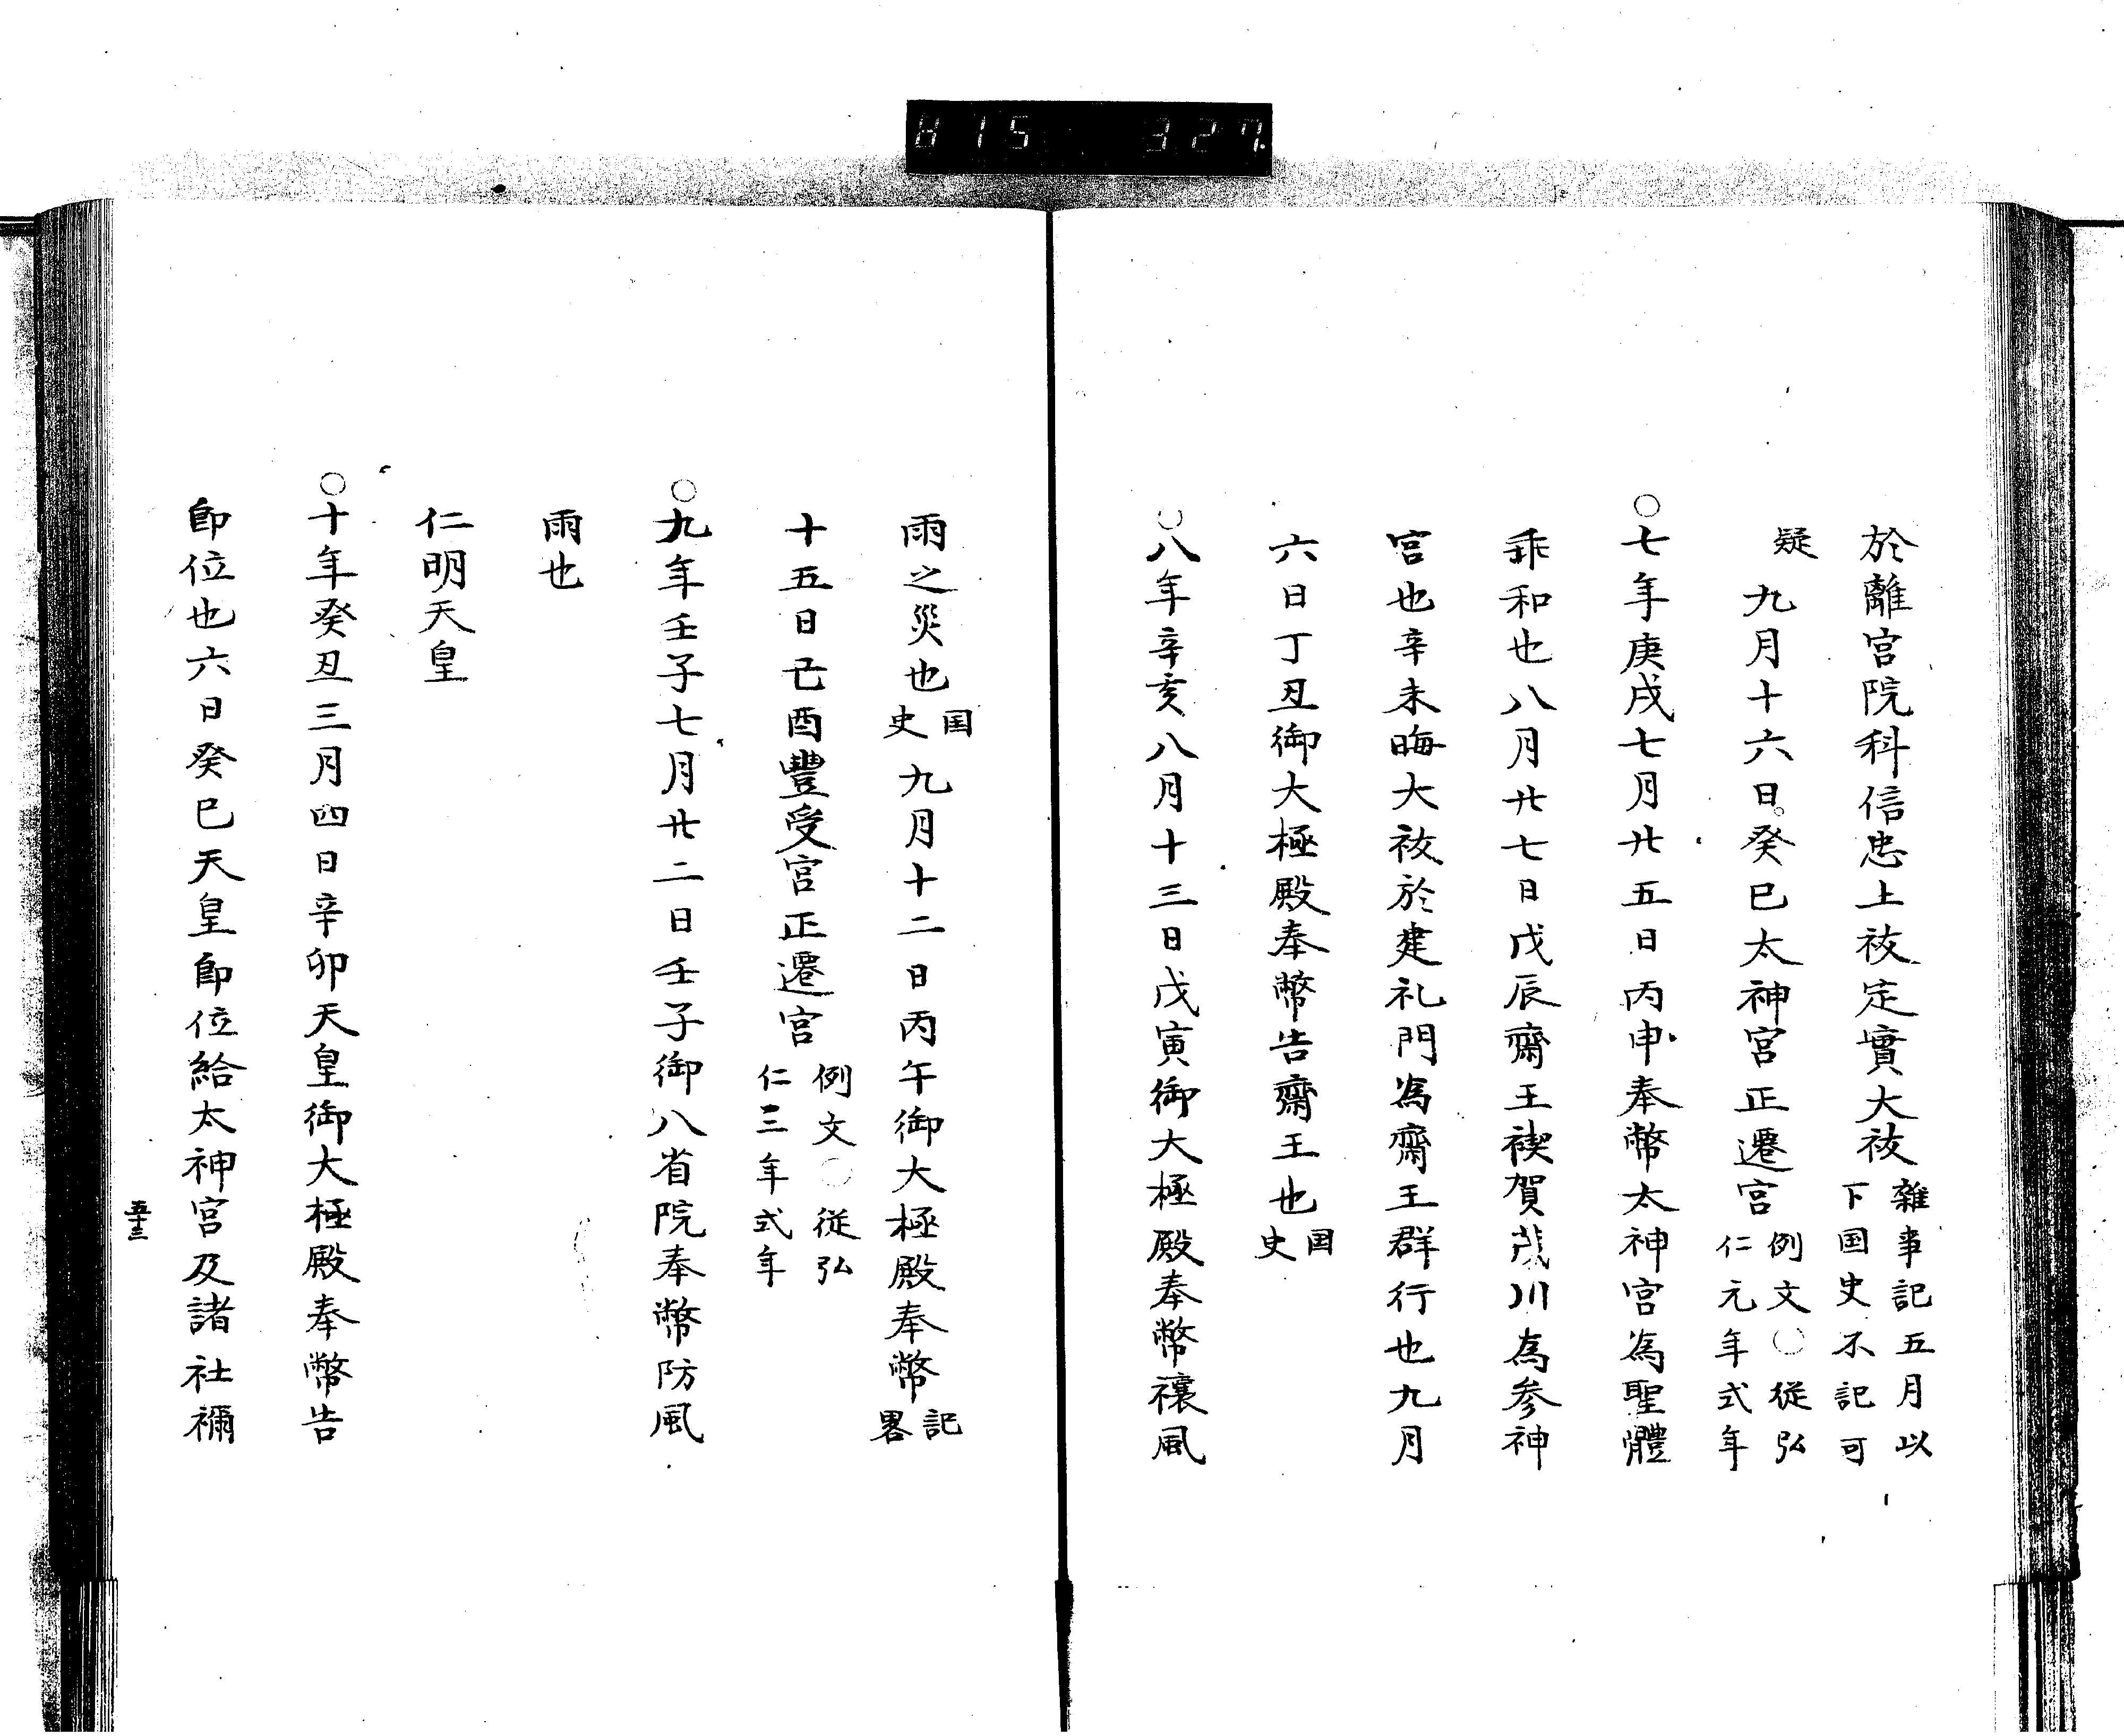 815 327
於離宮院科信忠上祓定實大祓 雑事記五月以
下国史不記可
疑 九月十六日癸巳太神宮正遷宮 例文○従弘
仁元年式年
○七年庚戌七月廿五日丙申奉幣太神宮為聖體
乖和也八月廿七日戊辰齋王禊賀茂川為参神
宮也辛未晦大祓於建礼門為齋王群行也九月
六日丁丑御大極殿奉幣告齋王也 国
史
○八年辛亥八月十三日戊寅御大極殿奉幣禳風
雨之災也 国
史 九月十二日丙午御大極殿奉幣 記
畧
十五日己酉豐受宮正遷宮 例文○従弘
仁三年式年
○九年壬子七月廿二日壬子御八省院奉幣防風
雨也
仁明天皇
○十年癸丑三月四日辛卯天皇御大極殿奉幣告
即位也六日癸巳天皇即位給太神宮及諸社禰
五十三